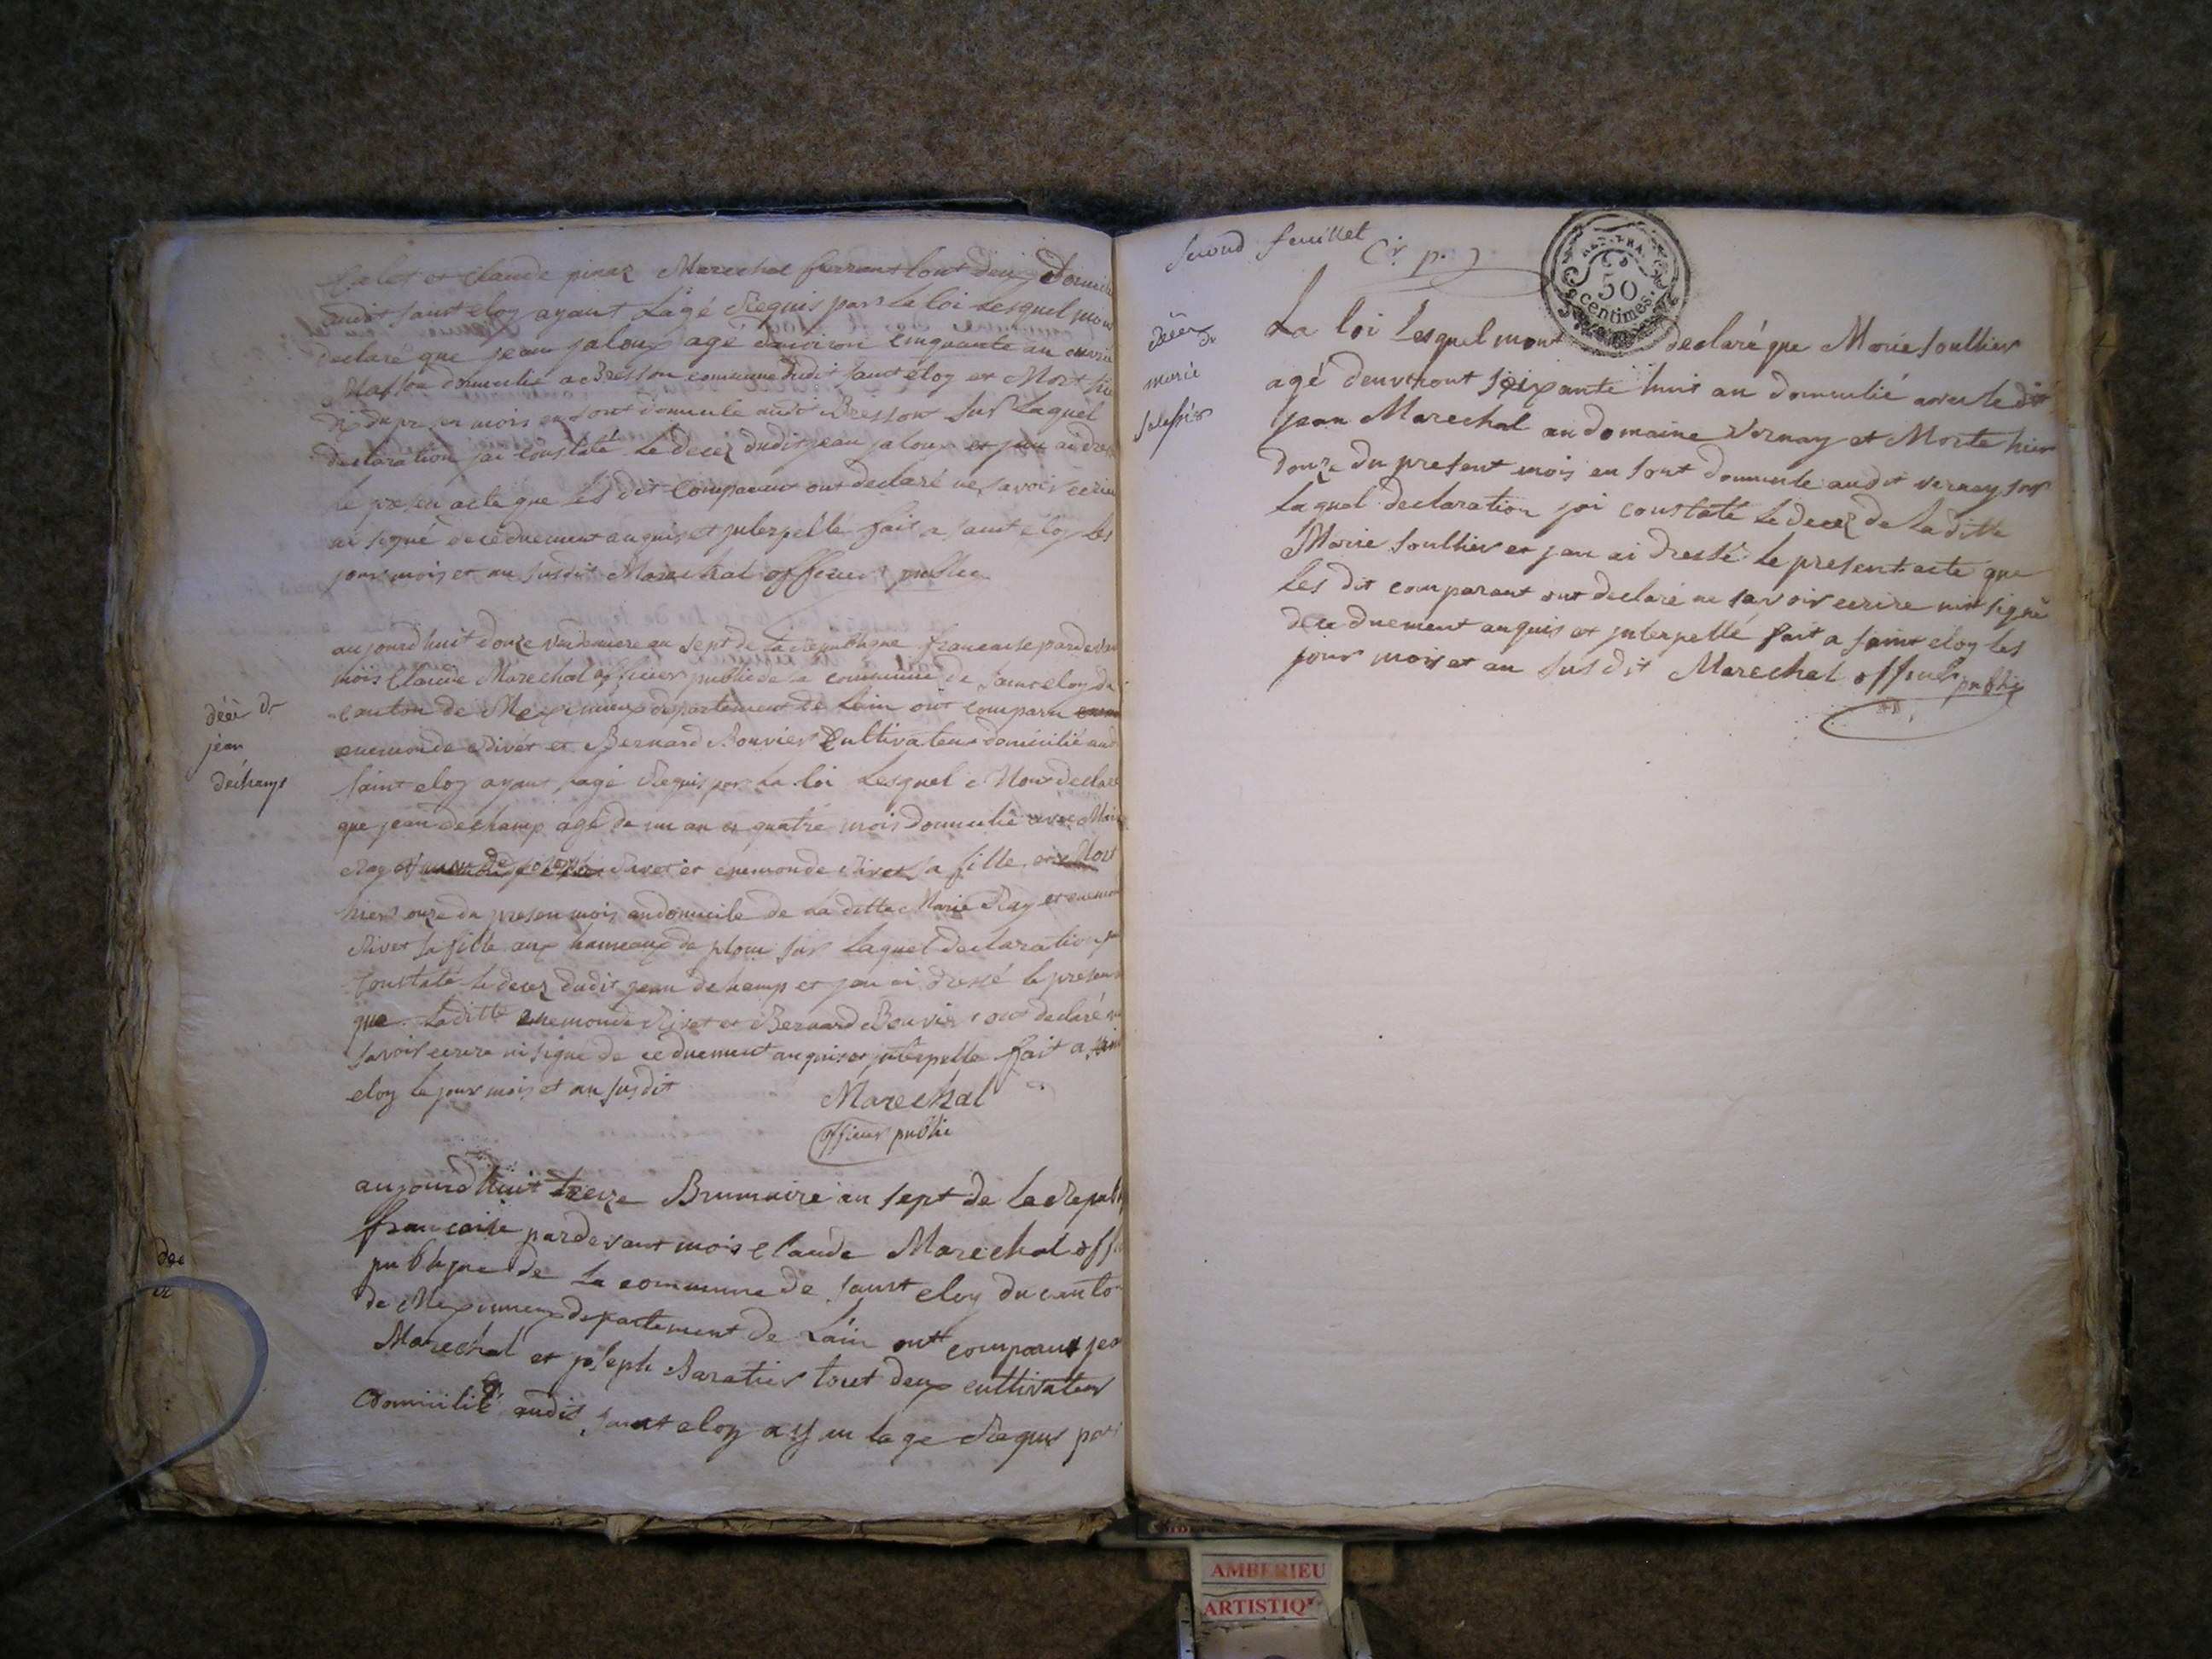 et Claude pinaz Marechal ferrant tout deux Domicilié
audit saint eloy ayant Lagé Requis pars La loi Lesquel mont
declaré que jean jaloux agé danviron cinquante an
domicilié a Bresson commune dudit saint eloy et Mort hie
dix du presen mois en sont domicile audit Bressont sur Laquel
declaration jai constaté Le decez dudit jean jaloux et jean ai dressé
Le presen acte que les dit comparant ont declaré ne savoir ecrire
ni signé de ce duement anquis et interpellé fait a saint eloy les
jour mois et an susdit Marechal officier public
aujourdhuit douze vendemiere an sept de la Republique francaise pardevan
mois Claude Marechal officier public de la commune de saint eloy du
canton de Meximieux departement de Lain ont comparu
enemonde Rivet et Bernard Bouvier Cultivateur domicilié audi
saint eloy ayant lagé Requis par la loi Lesquel Mont declaré
que jean dechamp agé de un an et quatre mois domicilié avec Marie
Ray et Rivet et enemonde Rivet sa fille et Mort
hier onze du presen mois au domicile de la ditte Marie Ray et enemon
Rivet sa fille aux hameaux de plou sur laquel declaration
Constaté le decez dudit jean dechamp et jan ai dressé le presen
que laditte enemonde Rivet et Bernard Bouvier ont declaré ne
savoir ecrire ni signe de ce duement anquis et interpelle fait a saint
eloy le jour mois et an susdit
Marechal
officier public
decè de
jean
dechamps
aujourdhuit treize Brumaire an sept de La Republ
francaise pardevant mois Claude Marechal offi
publique de La commune de saint eloy du canton
de Meximieux departement de Lain ont comparut jean
Marechal et joseph Baratier tout deux cultivateur
domicilié audit saint eloy ayan lage Requis par
dec
de
second feuillet
Cr. p.
REP. FRA.
50
centimes.
decè de
marie
La loi Lesquel mont declaré que Marie soullier
agé denviront soixante huit an domicilié avec le dit
jean Marechal au domaine vernay et Morte hier
douze du present mois en sont domicile audit vernay sur
Laquel declaration jai constaté Le decez de La ditte
Marie soullier et jan ai dressé Le present acte que
Les dit comparant ont declaré ne savoir ecrire nit signé
de ce duement anquis et interpellé fait a saint eloy les
jour mois et an susdit Marechal officier public
AMBERIEU
ARTISTIQ